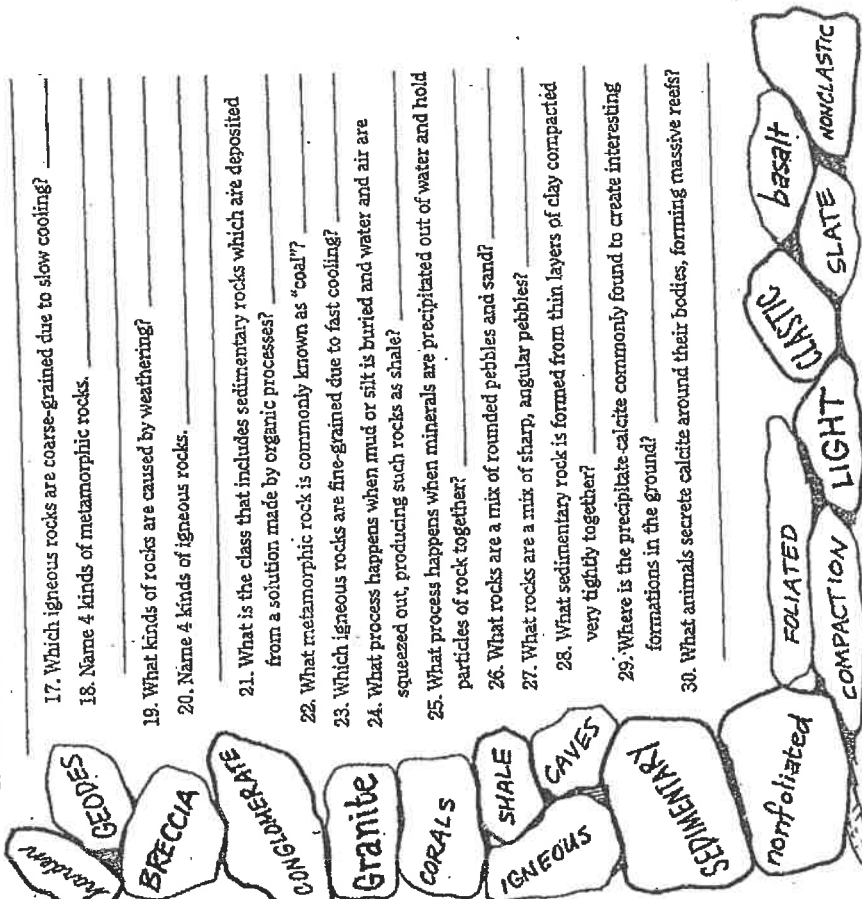 17. Which igneous rocks are coarse-grained due to slow cooling?
18. Name 4 kinds of metamorphic rocks.
19. What kinds of rocks are caused by weathering?
20. Name 4 kinds of igneous rocks.
21. What is the class that includes sedimentary rocks which are deposited
from a solution made by organic processes?
22. What metamorphic rock is commonly known as "coal"?
23. Which igneous rocks are fine-grained due to fast cooling?
24. What process happens when mud or silt is buried and water and air are
squeezed out, producing such rocks as shale?
25. What process happens when minerals are precipitated out of water and hold
particles of rock together?
26. What rocks are a mix of rounded pebbles and sand?
27. What rocks are a mix of sharp, angular pebbles?
28. What sedimentary rock is formed from thin layers of clay compacted
very tightly together?
29. Where is the precipitate calcite commonly found to create interesting
formations in the ground?
30. What animals secrete calcite around their bodies, forming massive reefs?
harden
GEODES
BRECCIA
CONGLOMERATE
Granite
CORALS
SHALE
IGNEOUS
CAVES
SEDIMENTARY
nonfoliated
FOLIATED
COMPACTION
LIGHT
CLASTIC
SLATE
basalt
NONCLASTIC